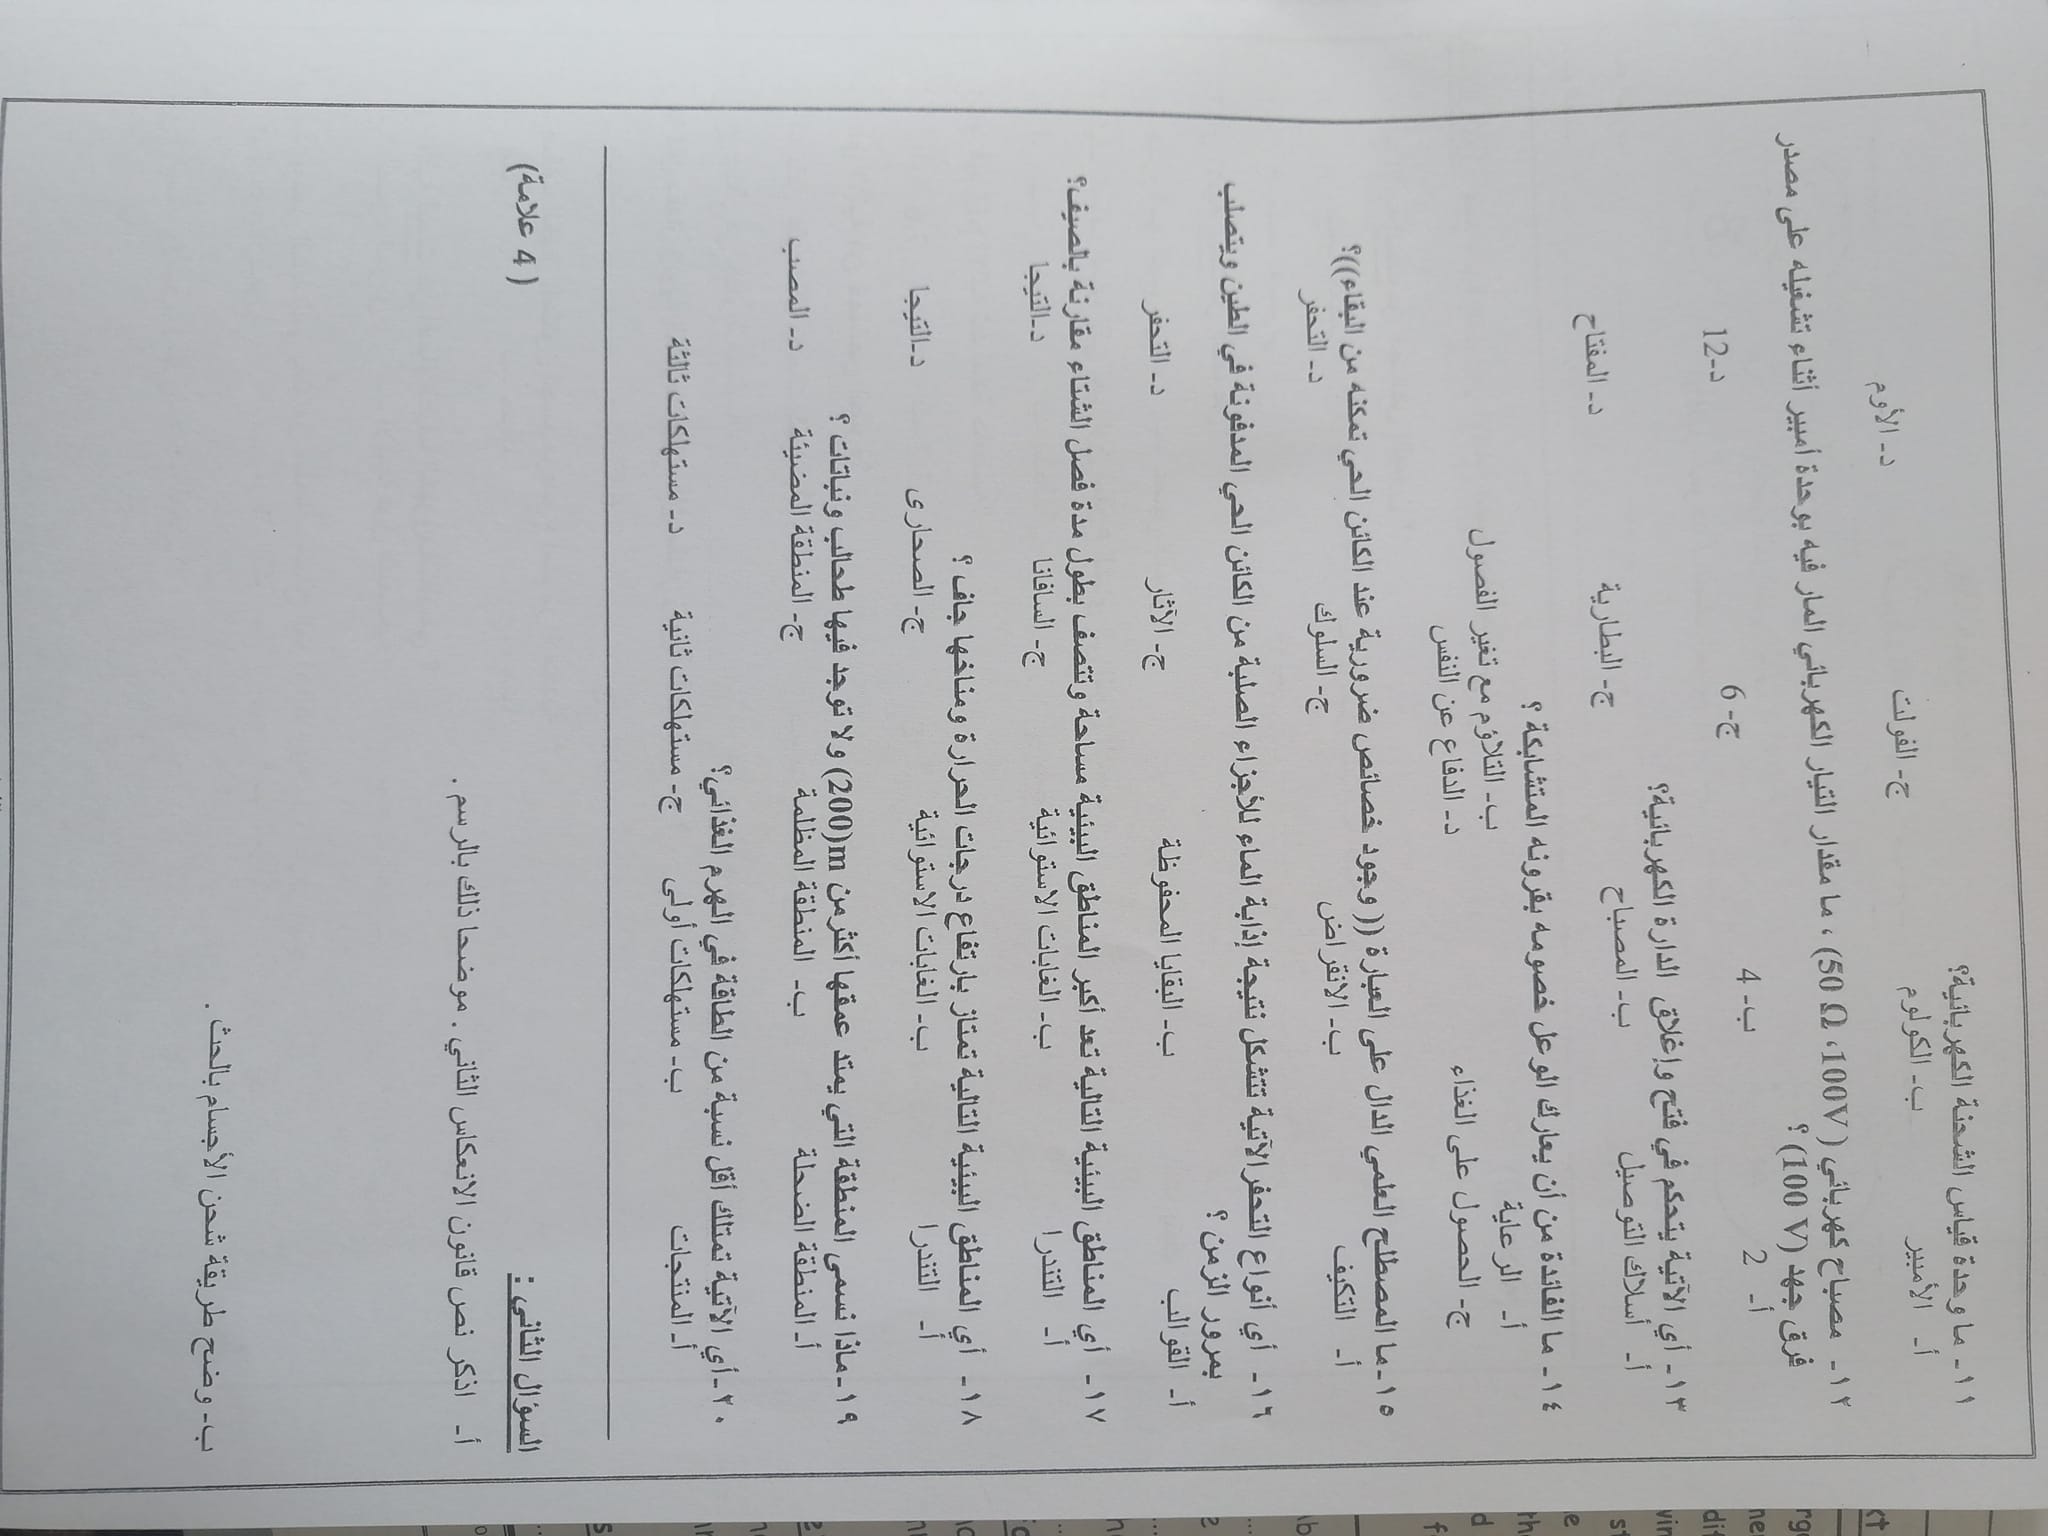 ١١ - ما وحدة قياس الشحنة الكهربائية؟
أ- الأمبير ب- الكولوم ج- الفولت د- الأوم
١٢ - مصباح كهربائي (100V، 50 Ω) ، ما مقدار التيار الكهربائي المار فيه بوحدة أمبير أثناء تشغيله على مصدر
فرق جهد (100 V) ؟
أ- 2 ب- 4 ج- 6 د-12
١٣ - أي الآتية يتحكم في فتح وإغلاق الدارة الكهربائية؟
أ- أسلاك التوصيل ب- المصباح ج- البطارية د- المفتاح
١٤ - ما الفائدة من أن يعارك الوعل خصومه بقرونه المتشابكة ؟
أ- الرعاية ب- التلاؤم مع تغير الفصول
ج- الحصول على الغذاء د- الدفاع عن النفس
١٥ -ما المصطلح العلمي الدال على العبارة ((وجود خصائص ضرورية عند الكائن الحي تمكنه من البقاء))؟
أ- التكيف ب- الانقراض ج- السلوك د- التحفر
١٦ - أي أنواع التحفر الآتية تتشكل نتيجة إذابة الماء للأجزاء الصلبة من الكائن الحي المدفونة في الطين ويتصلب
بمرور الزمن ؟
أ- القوالب ب- البقايا المحفوظة ج- الآثار د- التحفر
١٧ - أي المناطق البيئية التالية تعد أكبر المناطق البيئية مساحة وتتصف بطول مدة فصل الشتاء مقارنة بالصيف؟
أ- التندرا ب- الغابات الاستوائية ج- السافانا د-التيجا
١٨ - أي المناطق البيئية التالية تمتاز بارتفاع درجات الحرارة ومناخها جاف ؟
أ- التندرا ب- الغابات الاستوائية ج- الصحارى د-التيجا
١٩ -ماذا نسمى المنطقة التي يمتد عمقها أكثر من m(200) ولا توجد فيها طحالب ونباتات ؟
أ- المنطقة الضحلة ب- المنطقة المظلمة ج- المنطقة المضيئة د- المصب
٢٠ -أي الآتية تمتلك أقل نسبة من الطاقة في الهرم الغذائي؟
أ- المنتجات ب- مستهلكات أولى ج- مستهلكات ثانية د- مستهلكات ثالثة
السؤال الثاني : (4 علامة)
أ- اذكر نص قانون الانعكاس الثاني . موضحا ذلك بالرسم .
ب- وضح طريقة شحن الأجسام بالحث .